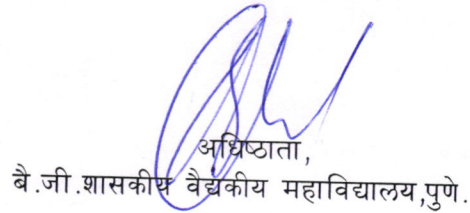 अधिष्ठाता,
बै.जी.शासकीय वैद्यकीय महाविद्यालय,पुणे.